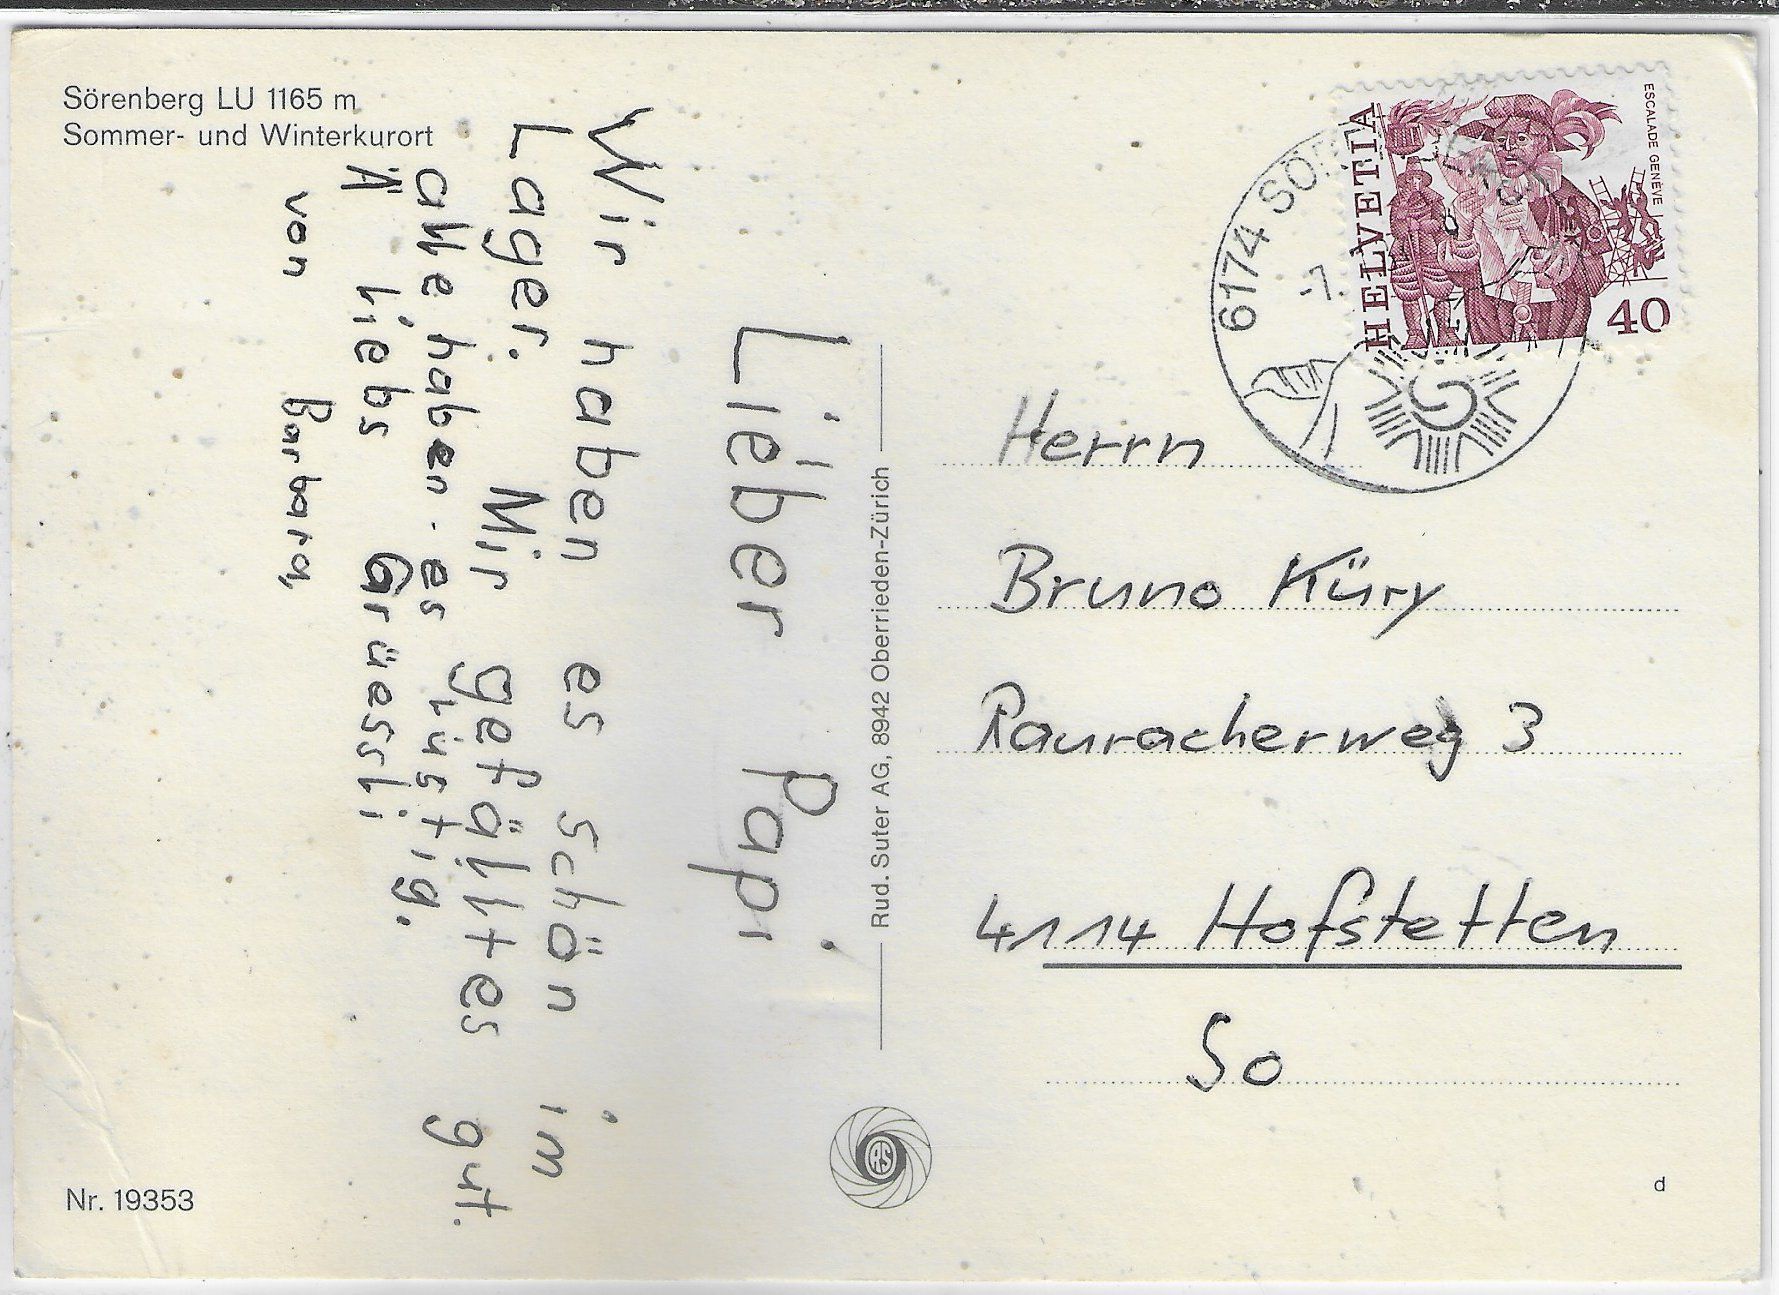 Sörenberg LU 1165 m
Sommer- und Winterkurort
Lieber Papi
Wir haben es schön im
Lager. Mir gefällt es gut.
alle haben es lustig.
Ä liebs Grüessli
von Barbara,
Rud. Suter AG, 8942 Oberrieden-Zürich
Nr. 19353
ESCALADE GENÈVE
HELVETIA
40
6174 SÖR
-7.
Herrn
Bruno Küry
Rauracherweg 3
4114 Hofstetten
So
RS
d